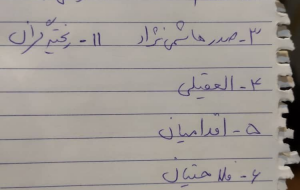 ۳- صدرهاشمی نژاد    ۱۱- ریخته گران
۴- العقیلی
۵- اقدامیان
۶- فلاحتیان